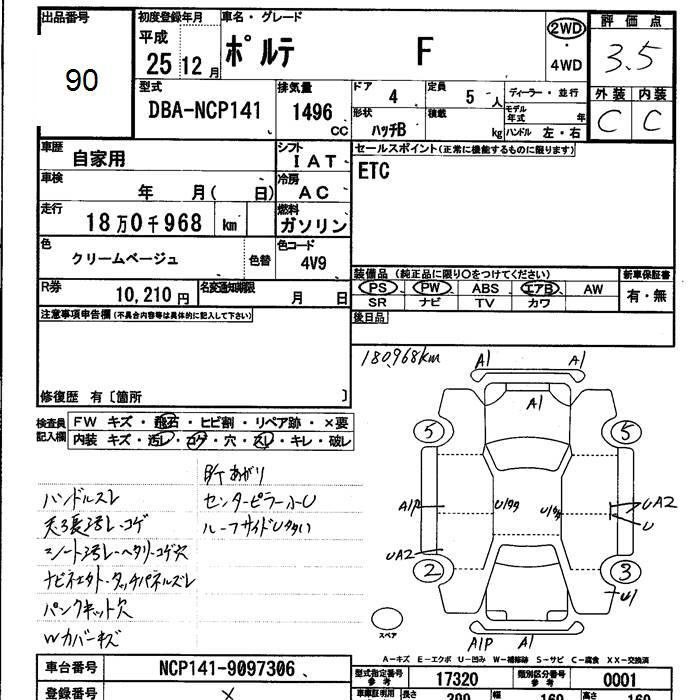 出品番号
90
初度登録年月
平成
25 12 月
車名・グレード
ポルテ F
2WD
・
4WD
評価点
3.5
外装 内装
C C
型式
DBA-NCP141
排気量
1496 CC
ドア
4
定員
5 人
形状
ハッチB
積載
kg
ディーラー・並行
モデル年式 年
ハンドル 左・右
車歴
自家用
シフト
I AT
セールスポイント(正常に機能するものに限ります)
ETC
車検
年 月( 日)
冷房
AC
走行
18万0千968 km
燃料
ガソリン
色
クリームベージュ
色替
色コード
4V9
装備品(純正品に限り○をつけてください)
PS PW ABS エアB AW
SR ナビ TV カワ
新車保証書
有・無
R券
10,210 円
名変通知期限
月 日
後日品
注意事項申告欄(不具合内容等は具体的に記入して下さい)
修復歴 有〔箇所 〕
180,968km
検査員記入欄
FW キズ・飛石・ヒビ割・リペア跡・×要
内装 キズ・汚レ・コゲ・穴・スレ・キレ・破レ
ハンドルスレ
センターピラー小U
ルーフサイドU多い
ナビネエクト・タッチパネルズレ
パンクキット欠
Wカバーキズ
A1 A1
A1
5 5
A1P
U1多
U1多
UA2
U
UA2
2 3
U1
スペア
A1P A1
A-キズ E-エクボ U-凹み W-補修跡 S-サビ C-腐食 XX-交換済
車台番号
NCP141-9097306
型式指定番号
参考
17320
類別区分番号
参考
0001
登録番号
×
車庫証明用
長さ
399
幅
169
高さ
169